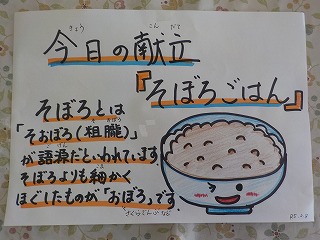 きょう こん だて
今日の献立
『そぼろごはん』
そぼろとは
「そおぼろ（粗朧）」
が語源だといわれています
そぼろよりも細かく
ほぐしたものが「おぼろ」です